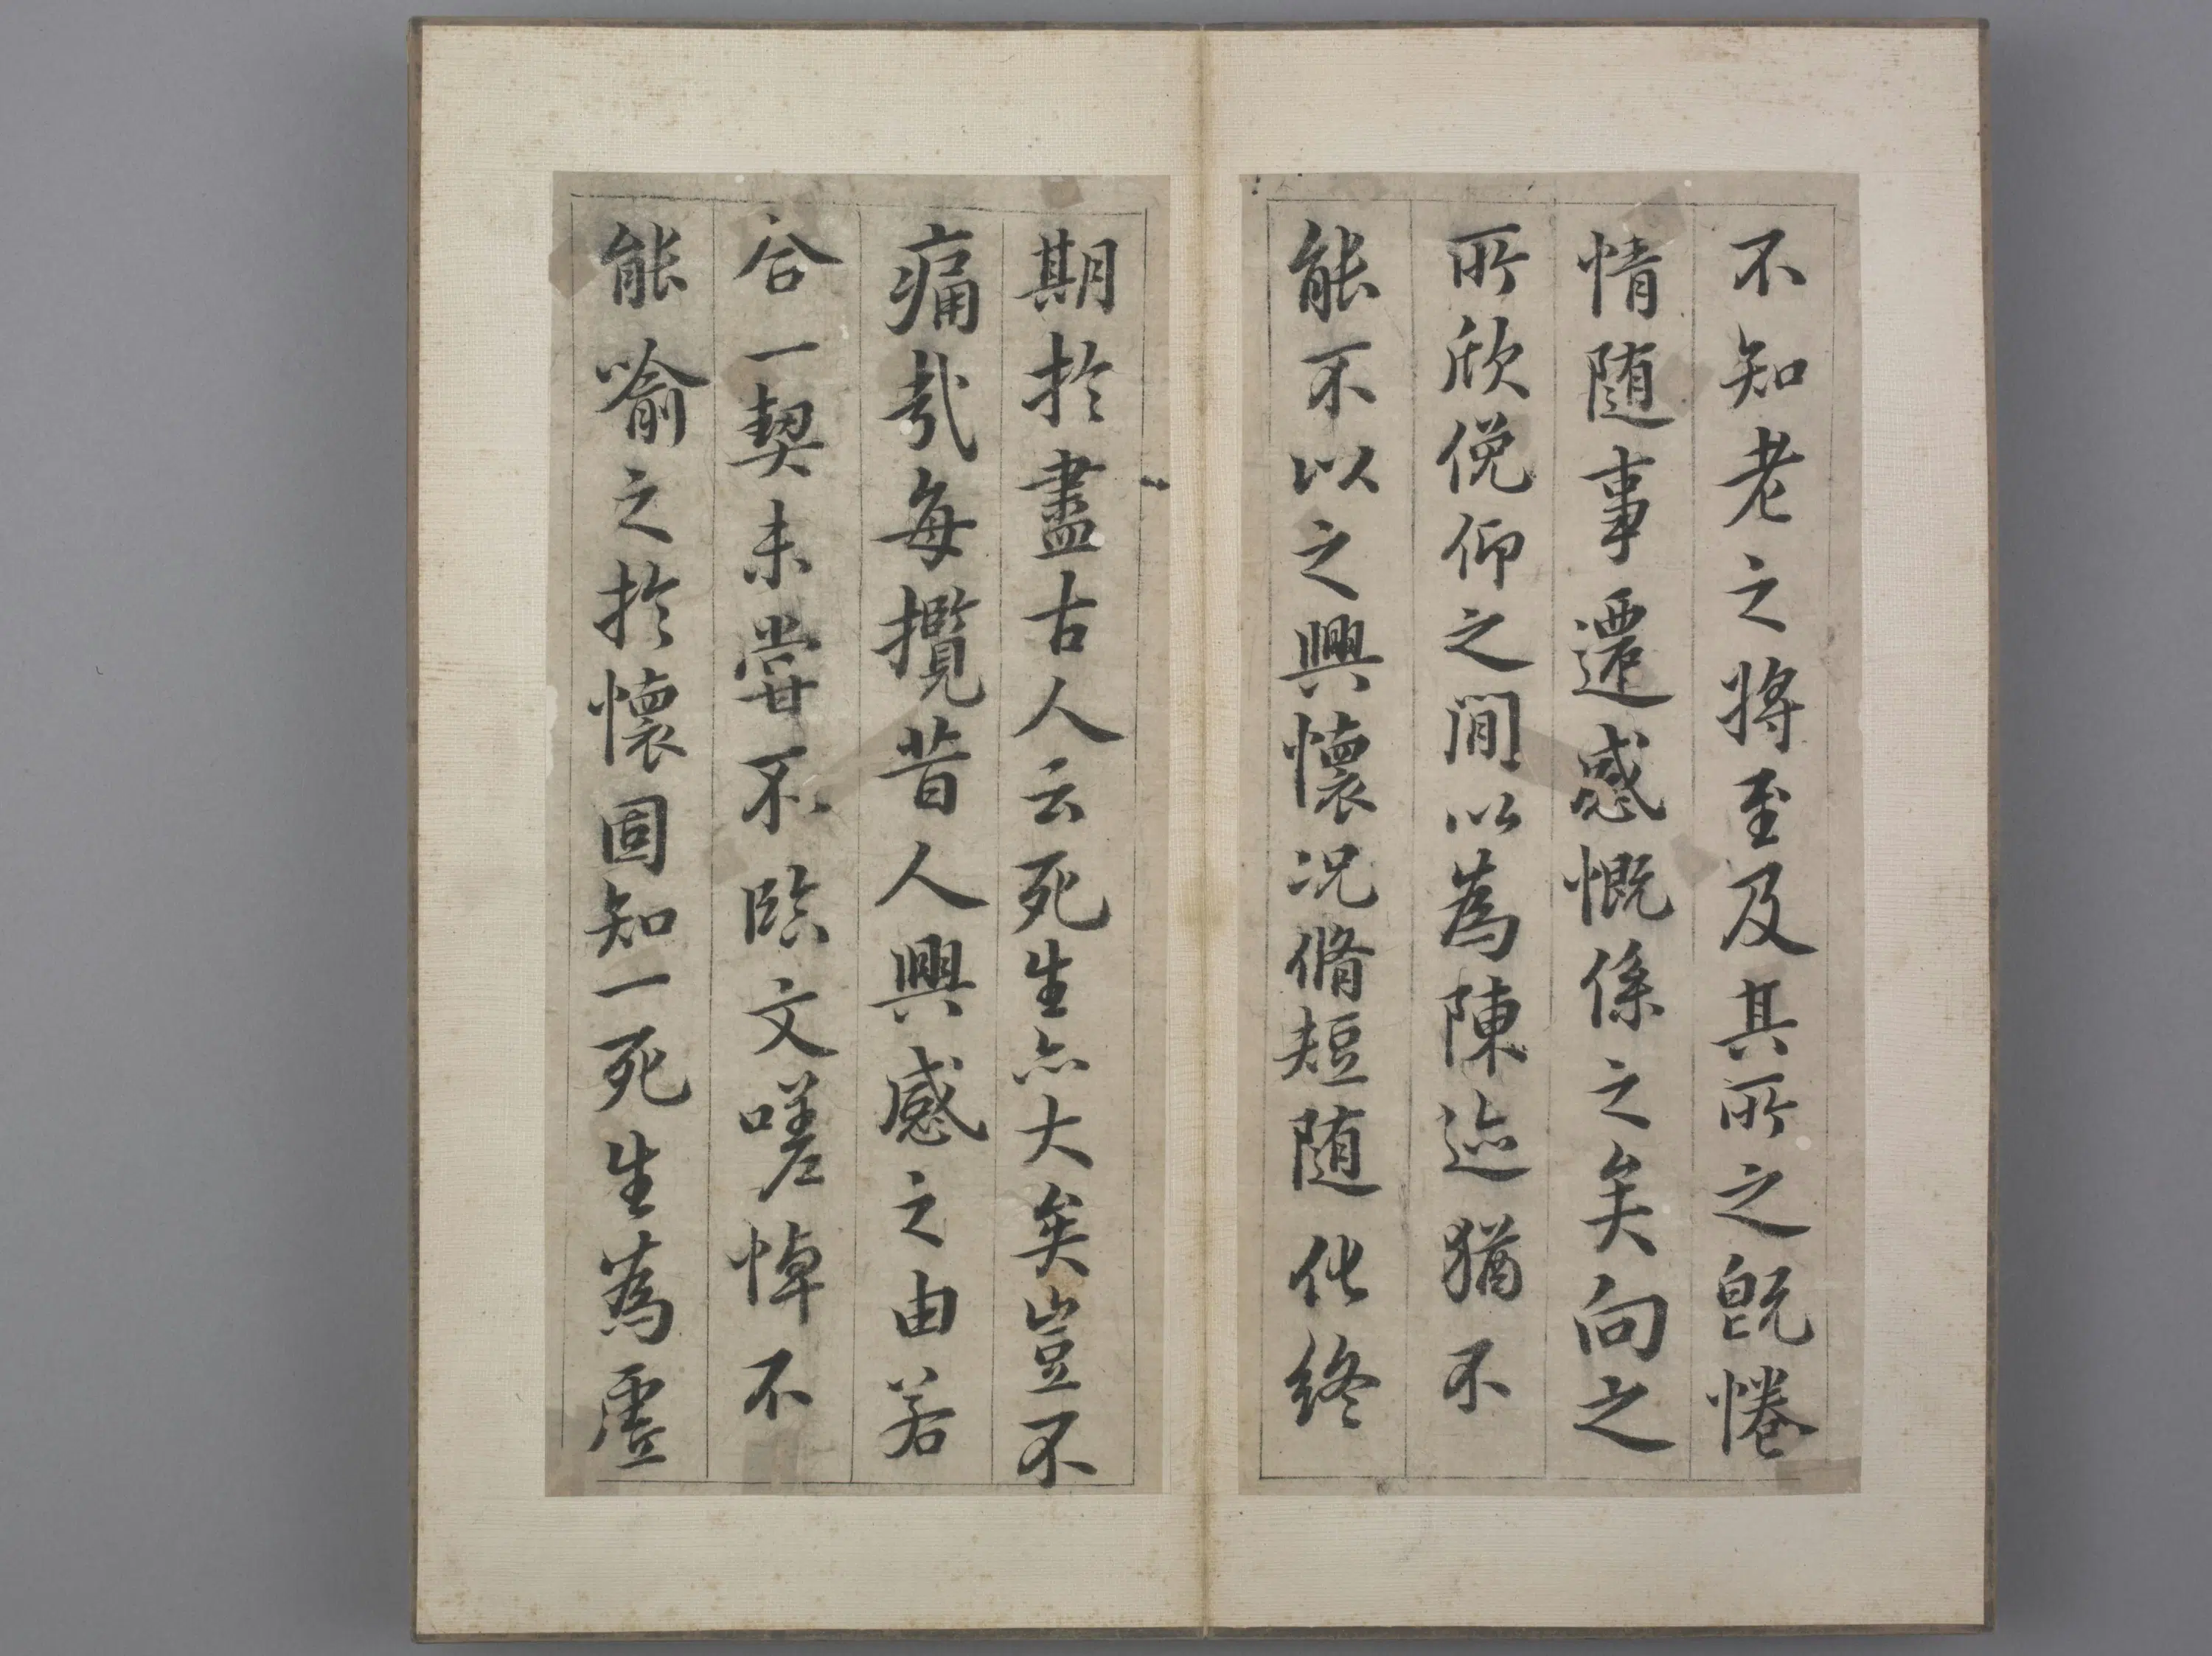 不知老之將至及其所之既惓
情隨事遷感慨係之矣向之
所欣俛仰之間以為陳迹猶不
能不以之興懷况脩短隨化終
期於盡古人云死生亦大矣豈不
痛哉每攬昔人興感之由若
合一契未甞不臨文嗟悼不
能喻之於懷固知一死生為虛